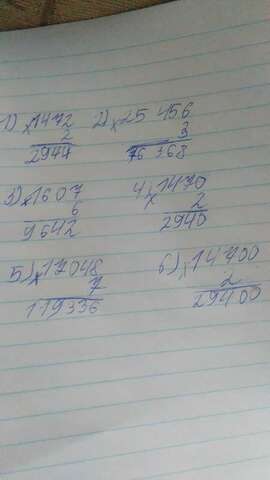 1) x1472
2
2944
2) x25 456
3
76 368
3) x1607
6
9642
4) x1470
2
2940
5) x17048
7
119336
6) x14700
2
29400